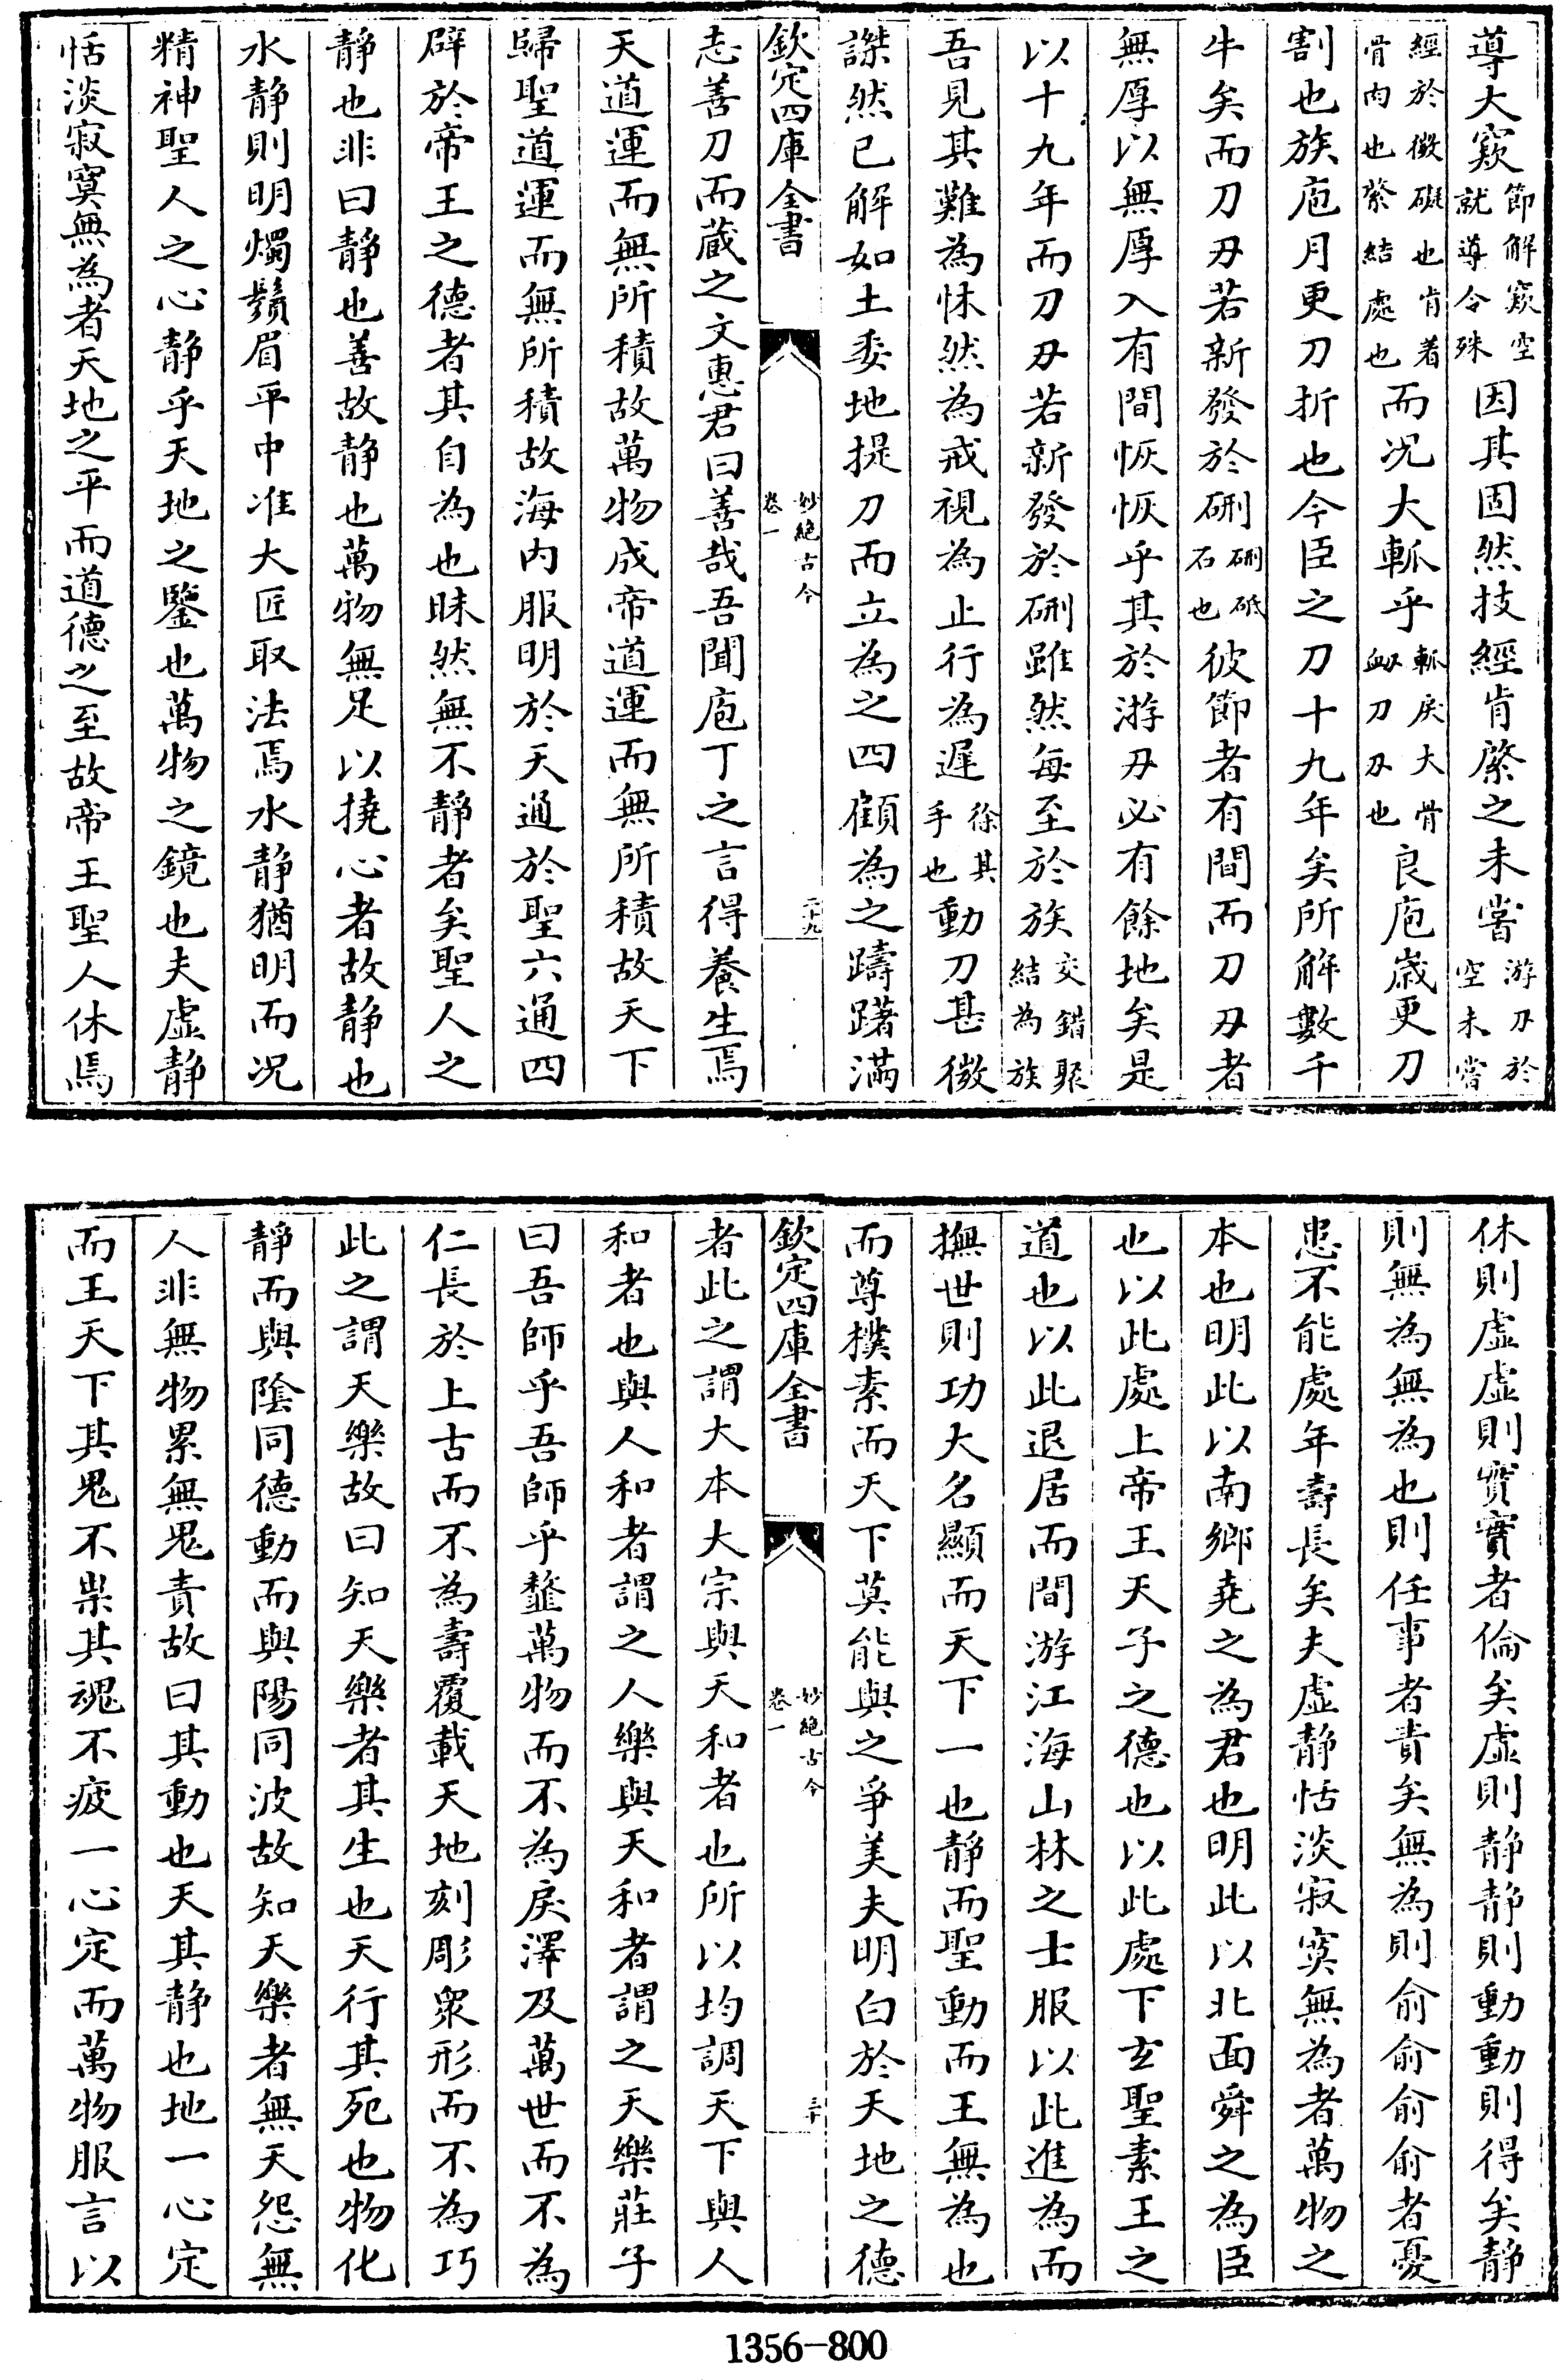 導大窾節解窾空就導令殊因其固然技經肯綮之未嘗游刀於空未嘗
經於微礙也肯着骨肉也綮結處也而况大軱乎軱戾大骨衂刀刃也良庖嵗更刀
割也族庖月更刀折也今臣之刀十九年矣所解數千
牛矣而刀刃若新發於硎硎砥石也彼節者有間而刀刃者
無厚以無厚入有間恢恢乎其於游刃必有餘地矣是
以十九年而刀刃若新發於硎雖然每至於族交錯聚結為族
吾見其難為怵然為戒視為止行為遲徐其手也動刀甚微
謋然已解如土委地提刀而立為之四顧為之躊躇滿
欽定四庫全書
妙絶古今
卷一
二十九
志善刀而藏之文惠君曰善哉吾聞庖丁之言得養生焉
天道運而無所積故萬物成帝道運而無所積故天下
歸聖道運而無所積故海内服明於天通於聖六通四
辟於帝王之德者其自為也昧然無不静者矣聖人之
静也非曰静也善故静也萬物無足以撓心者故静也
水静則明燭鬚眉平中准大匠取法焉水静猶明而况
精神聖人之心静乎天地之鑒也萬物之鏡也夫虚静
恬淡寂寞無為者天地之平而道德之至故帝王聖人休焉
休則虚虚則實實者倫矣虚則静静則動動則得矣静
則無為無為也則任事者責矣無為則俞俞俞俞者憂
患不能處年壽長矣夫虚静恬淡寂寞無為者萬物之
本也明此以南鄉堯之為君也明此以北面舜之為臣
也以此處上帝王天子之德也以此處下玄聖素王之
道也以此退居而間游江海山林之士服以此進為而
撫世則功大名顯而天下一也静而聖動而王無為也
而尊樸素而天下莫能與之爭美夫明白於天地之德
欽定四庫全書
妙絶古今
卷一
三十
者此之謂大本大宗與天和者也所以均調天下與人
和者也與人和者謂之人樂與天和者謂之天樂莊子
曰吾師乎吾師乎韲萬物而不為戾澤及萬世而不為
仁長於上古而不為壽覆載天地刻彫衆形而不為巧
此之謂天樂故曰知天樂者其生也天行其死也物化
静而與陰同德動而與陽同波故知天樂者無天怨無
人非無物累無鬼責故曰其動也天其静也地一心定
而王天下其鬼不祟其魂不疲一心定而萬物服言以
1356-800